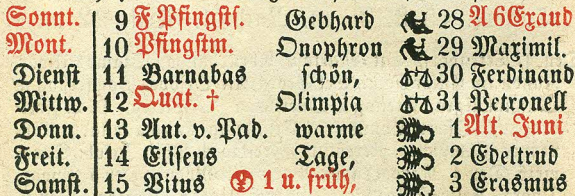 Sonnt. 9 F Pfingsts. Gebhard 28 A 6Exaud
Mont. 10 Pfingstm. Onophron 29 Maximil.
Dienst 11 Barnabas schön, 30 Ferdinand
Mittw. 12 Quat. † Olimpia 31 Petronell
Donn. 13 Ant. v. Pad. warme 1 Alt. Juni
Freit. 14 Eliseus Tage, 2 Edeltrud
Samst. 15 Vitus 1 u. früh, 3 Erasmus